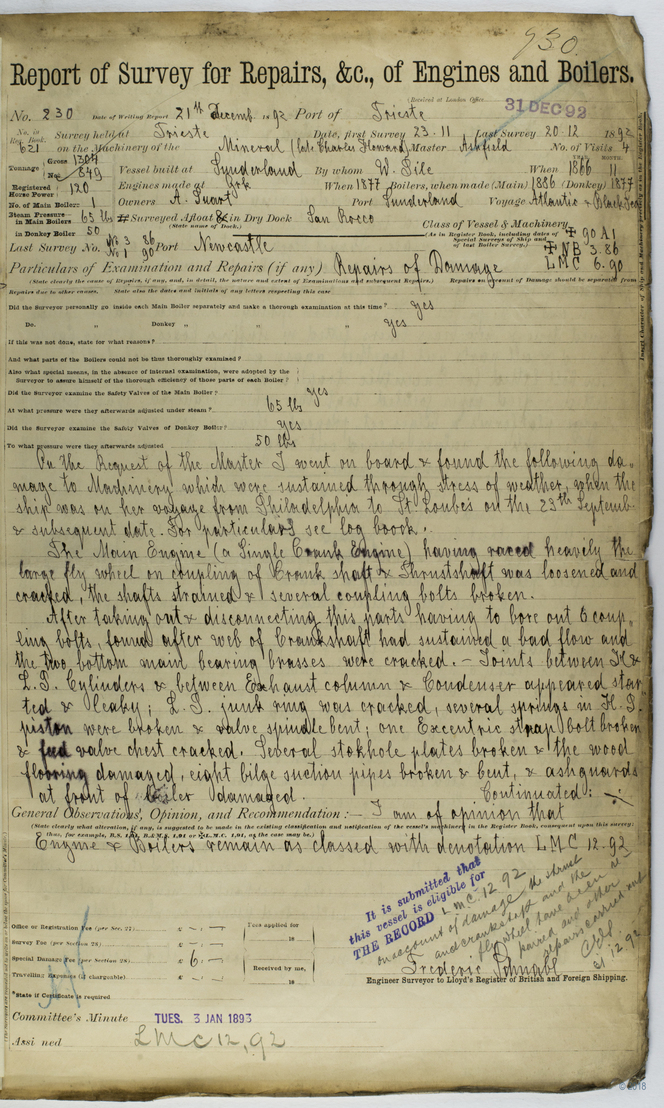 930.
Report of Survey for Repairs, &c., of Engines and Boilers.
(Received at London Office
31 DEC 92
No. 230 Date of Writing Report 21st Decemb. 1892 Port of Trieste
No. in Reg. Book. 621 Survey held at Trieste Date, first Survey 23.11 Last Survey 20.12 1892
on the Machinery of the Mineral (late Charles Howard) Master Ashfield No. of Visits 4
Tonnage Gross 1304 Net 849 Vessel built at Sunderland By whom W. Pile When 1866 11
Registered Horse Power 120 Engines made at When 1877 Boilers, when made (Main) 1886 (Donkey) 1877
No. of Main Boiler: 1 Owners A. Port Sunderland Voyage Atlantic & Black Sea
Steam Pressure in Main Boilers 65 lbs # Surveyed Afloat & in Dry Dock San Rocco
(State name of Dock.)
in Donkey Boiler 50
Class of Vessel & Machinery 90 A1
(As in Register Book, including dates of Special Surveys of Ship and of last Boiler Survey.) NB 3.86
LMC 6.90
Last Survey No. No 3 86 No 1 90 Port Newcastle
Particulars of Examination and Repairs (if any) Repairs of Damage
(State clearly the cause of Repairs, if any, and, in detail, the nature and extent of Examinations and subsequent Repairs.) Repairs on account of Damage should be separated from
Repairs due to other causes. State also the dates and initials of any letters respecting this case
Did the Surveyor personally go inside each Main Boiler separately and make a thorough examination at this time? yes
Do. " Donkey " " " yes
If this was not done, state for what reasons?
And what parts of the Boilers could not be thus thoroughly examined?
Also what special means, in the absence of internal examination, were adopted by the
Surveyor to assure himself of the thorough efficiency of those parts of each Boiler?
Did the Surveyor examine the Safety Valves of the Main Boiler? yes
At what pressure were they afterwards adjusted under steam? 65 lbs
Did the Surveyor examine the Safety Valves of Donkey Boiler? yes
To what pressure were they afterwards adjusted 50 lbs
On the Request of the Master I went on board & found the following da-
mage to Machinery which were sustained through stress of weather, when the
ship was on her voyage from Philadelphia to St. Loubes on the 23th Septemb
& subsequent date. For particulars see log boock.
The Main Engine (a Single Crank Engine) having raced heavely the
large fly wheel on coupling of Crank shaft & Thrustshaft was loosened and
cracked, the shafts strained & several coupling bolts broken.
After taking out & disconnecting this parts having to bore out 6 coup-
ling bolts, found after web of Crankshaft had sustained a bad flow and
the two bottom main bearing brasses were cracked. – Joints between H &
L.P. Cylinders & between Exhaust column & Condenser appeared star-
ted & leaky; L.P. junk ring was cracked, several springs in H.P.
piston were broken & valve spindle bent; one Excentric strap bolt broken
& feed valve chest cracked. Several stokhole plates broken & the wood
flooring damaged, eight bilge suction pipes broken & bent, & ashguards
at front of Boiler damaged. Continued:
General Observations, Opinion, and Recommendation:– I am of opinion that
(State clearly what alteration, if any, is suggested to be made in the existing classification and notification of the vessel's machinery in the Register Book, consequent upon this survey;
thus, for example, B.S. 1.91, B.&M.S. 1.91 or L.M.C. 1.91, as the case may be.)
Engine & Boilers remain as classed with denotation LMC 12-92
It is submitted that
this vessel is eligible for
THE RECORD LMC 12 92
on account of damage the thrust
and crankshaft and the
fly wheel have been re-
paired and other
repairs carried out
31.12.92
Office or Registration Fee (per Sec. 27) £ - : -
Fees applied for
18
Survey Fee (per Section 28) £ - : -
Special Damage Fee (per Section 28) £ 6 : -
Received by me,
18
Travelling Expenses (if chargeable) £
*State if Certificate is required
Frederic Schnabl
Engineer Surveyor to Lloyd's Register of British and Foreign Shipping.
Committee's Minute TUES. 3 JAN 1893
Assigned LMC 12,92
© 2018